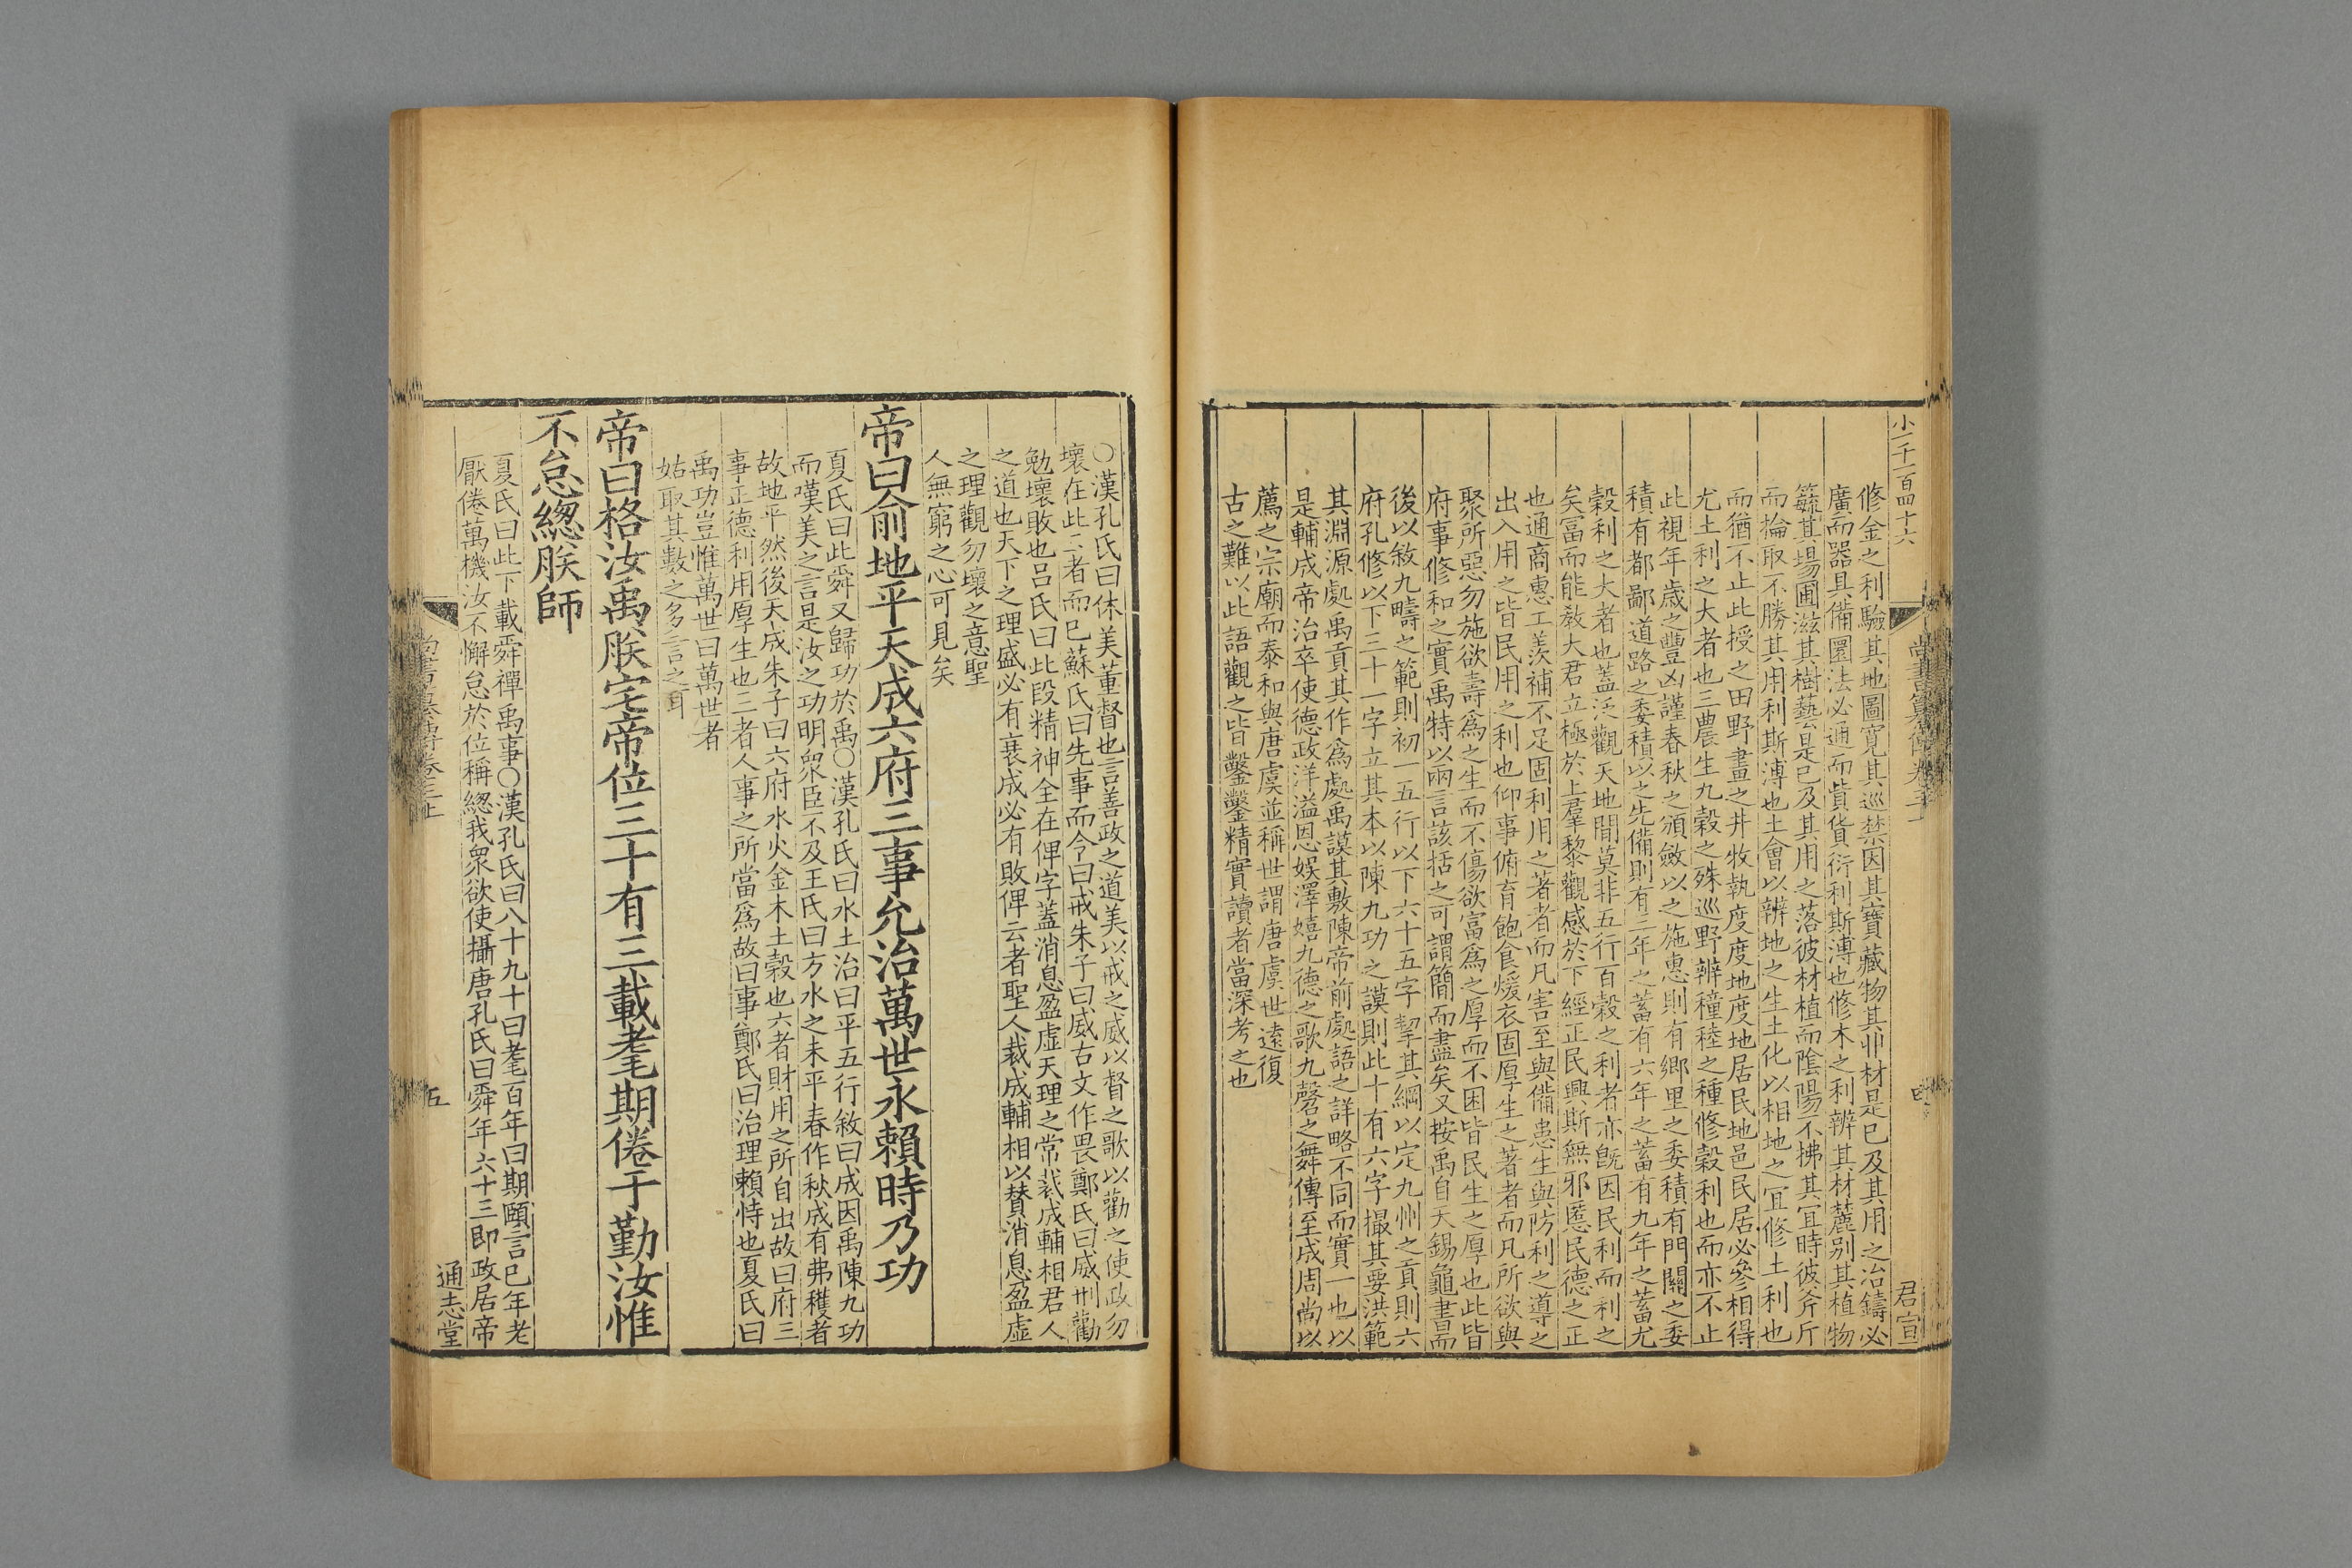 小一千一百四十六
君宣
修金之利驗其地圖寬其巡禁因其寶藏物其丱材是已及其用之冶鑄必
廣而器具備圜法必通而貲貨衍利斯溥也修木之利辨其材麓别其植物
蓺其場圃滋其樹藝是已及其用之落彼材植而陰陽不拂其宜時彼斧斤
而掄取不勝其用利斯溥也土會以辨地之生土化以相地之宜修土利也
而猶不止此授之田野畫之井牧執度度地度地居民地邑民居必參相得
尤土利之大者也三農生九穀之殊巡野辨穜稑之種修穀利也而亦不止
此視年歲之豐凶謹春秋之頒斂以之施惠則有鄉里之委積有門關之委
積有都鄙道路之委積以之先備則有三年之蓄有六年之蓄有九年之蓄尤
穀利之大者也蓋泛觀天地間莫非五行百穀之利者亦旣因民利而利之
矣富而能敎大君立極於上羣黎觀感於下經正民興斯無邪慝民德之正
也通商惠工羨補不足固利用之著者而凡害至與備患生與防利之導之
出入用之皆民用之利也仰事俯育飽食煖衣固厚生之著者而凡所欲與
聚所惡勿施欲壽爲之生而不傷欲富爲之厚而不困皆民生之厚也此皆
府事修和之實禹特以兩言該括之可謂簡而盡矣又按禹自天錫龜書而
後以敘九疇之範則初一五行以下六十五字挈其綱以定九州之貢則六
府孔修以下三十一字立其本以陳九功之謨則此十有六字撮其要洪範
其淵源處禹貢其作爲處禹謨其敷陳帝前處語之詳略不同而實一也以
是輔成帝治卒使德政洋溢恩娛澤嬉九德之歌九磬之舞傳至成周尚以
薦之宗廟而泰和與唐虞並稱世謂唐虞世遠復
古之難以此語觀之皆鑿鑿精實讀者當深考之也
○漢孔氏曰休美董督也言善政之道美以戒之威以督之歌以勸之使政勿
壞在此三者而已蘇氏曰先事而令曰戒朱子曰威古文作畏鄭氏曰威刑勸
勉壞敗也呂氏曰此段精神全在俾字蓋消息盈虛天理之常裁成輔相君人
之道也天下之理盛必有衰成必有敗俾云者聖人裁成輔相以賛消息盈虛
之理觀勿壞之意聖
人無窮之心可見矣
帝曰俞地平天成六府三事允治萬世永賴時乃功
夏氏曰此舜又歸功於禹○漢孔氏曰水土治曰平五行敘曰成因禹陳九功
而嘆美之言是汝之功明衆臣不及王氏曰方水之未平春作秋成有弗穫者
故地平然後天成朱子曰六府水火金木土穀也六者財用之所自出故曰府三
事正德利用厚生也三者人事之所當爲故曰事鄭氏曰治理賴恃也夏氏曰
禹功豈惟萬世曰萬世者
姑取其數之多言之耳
帝曰格汝禹朕宅帝位三十有三載耄期倦于勤汝惟
不怠緫朕師
夏氏曰此下載舜禪禹事○漢孔氏曰八十九十曰耄百年曰期頤言已年老
厭倦萬機汝不懈怠於位稱緫我衆欲使攝唐孔氏曰舜年六十三即政居帝
五
通志堂